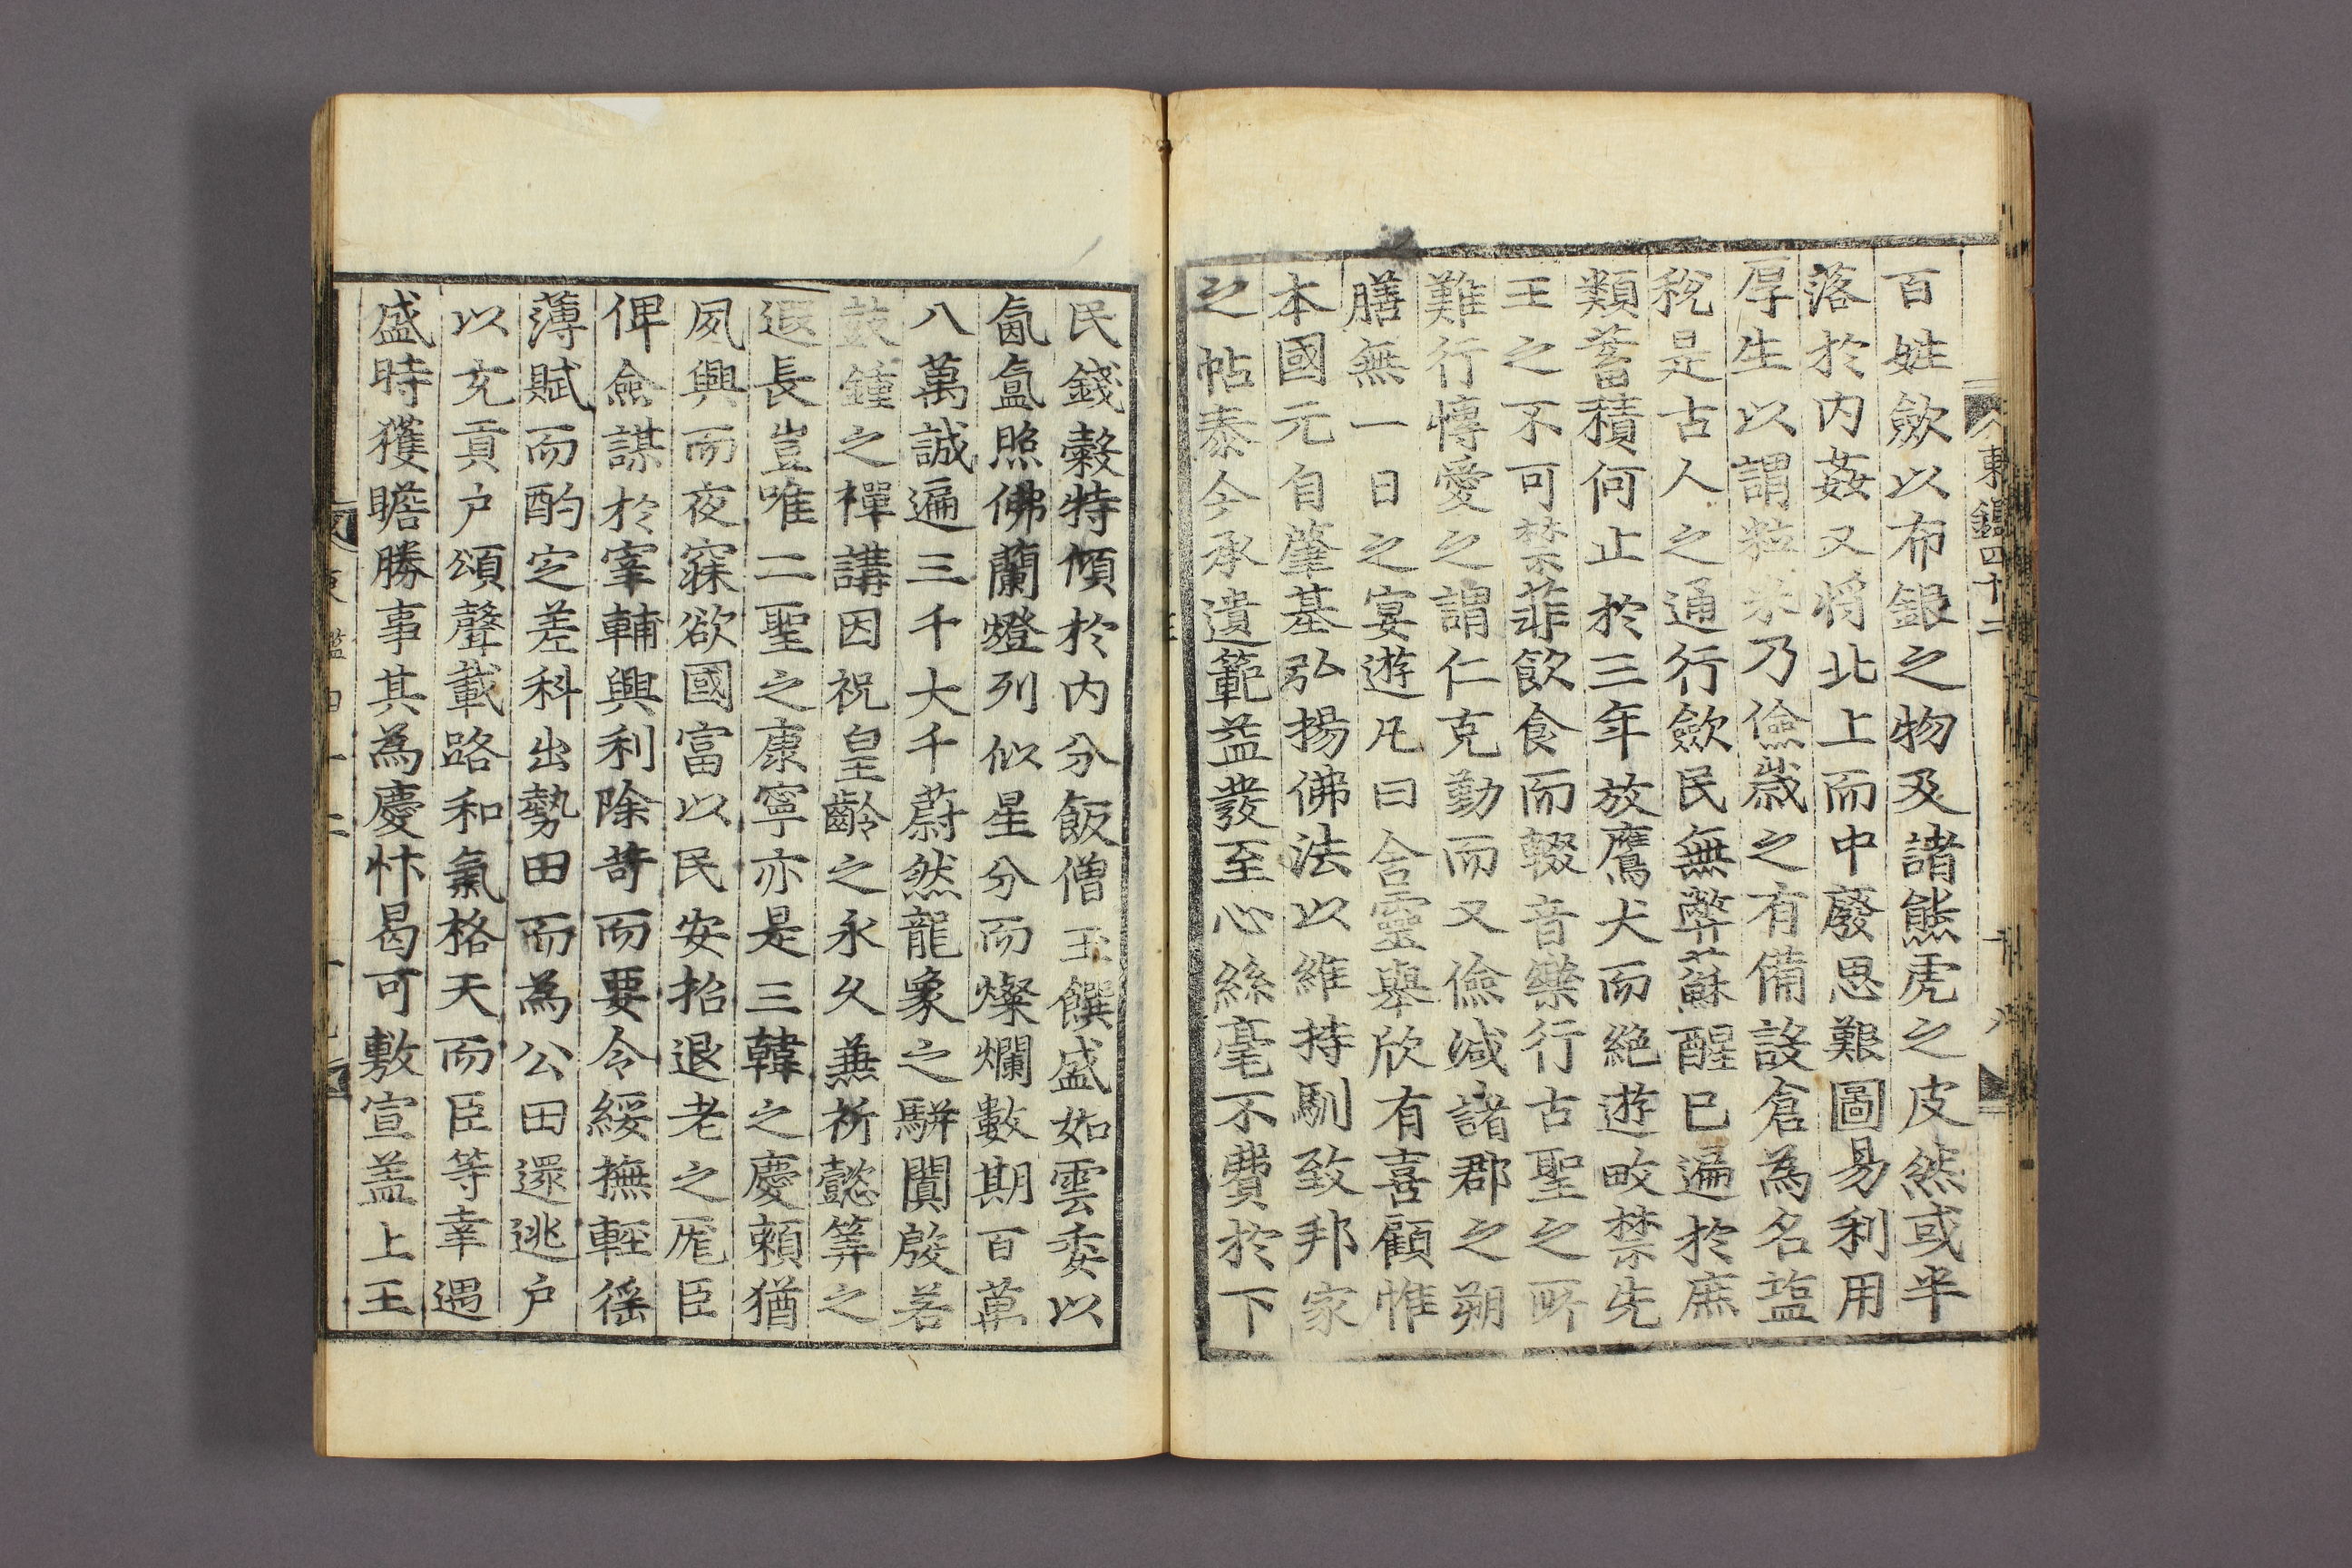 東鑑四十二
十八
百姓歛以布銀之物及諸熊虎之皮然或半
落於内姦又將北上而中廢思艱圖易利用
厚生以謂粒米乃儉歲之有備設倉為名鹽
稅是古人之通行歛民無弊蘇醒已遍於庶
類蓄積何止於三年放鷹犬而絶遊畋禁先
王之不可禁菲飲食而輟音樂行古聖之所
難行慱愛之謂仁克勤而又儉減諸郡之朔
膳無一日之宴遊凡曰含靈舉欣有喜顧惟
本國元自肇基弘揚佛法以維持馴致邦家
之帖泰今承遺範益發至心絲毫不費於下
民錢糓特傾於内分飯僧玉饌盛如雲委以
氤氲照佛蘭燈列似星分而燦爛數期百萬
八萬誠遍三千大千蔚然龍象之騈闐殷若
鼓鍾之禪講因祝皇齡之永久兼祈懿筭之
遐長豈唯二聖之康寧亦是三韓之慶頼猶
夙興而夜寐欲國富以民安招退老之厖臣
俾僉謀於宰輔興利除苛而要令綏撫輕徭
薄賦而酌定差科出勢田而為公田還逃户
以充貢户頌聲載路和氣格天而臣等幸遇
盛時獲瞻勝事其為慶忭曷可敷宣盖上王